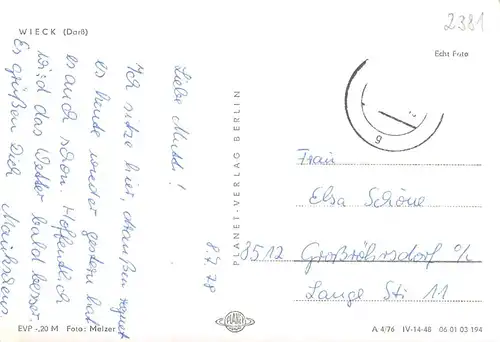 2381
WIECK (Darß)
Echt Foto
Liebe Mutti!
Ich sitze hier, draußen regnet
es heute wieder gestern hat
es auch schon. Hoffentlich
wird das Wetter bald besser.
Es grüßen Dich
8.7.78
PLANET-VERLAG BERLIN
Frau
Elsa Schöne
8512 Großröhrsdorf o/L
Lange Str 11
EVP -,20 M Foto: Melzer
PLANET
A 4/76 IV-14-48 06 01 03 194